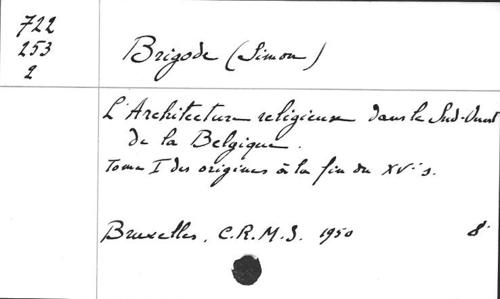 722
253
2
Brigode (Simon)
L'Architecture religieuse dans le Sud-Ouest
de la Belgique.
Tome I des origines à la fin du XVe s.
Bruxelles, C.R.M.S. 1950 8°